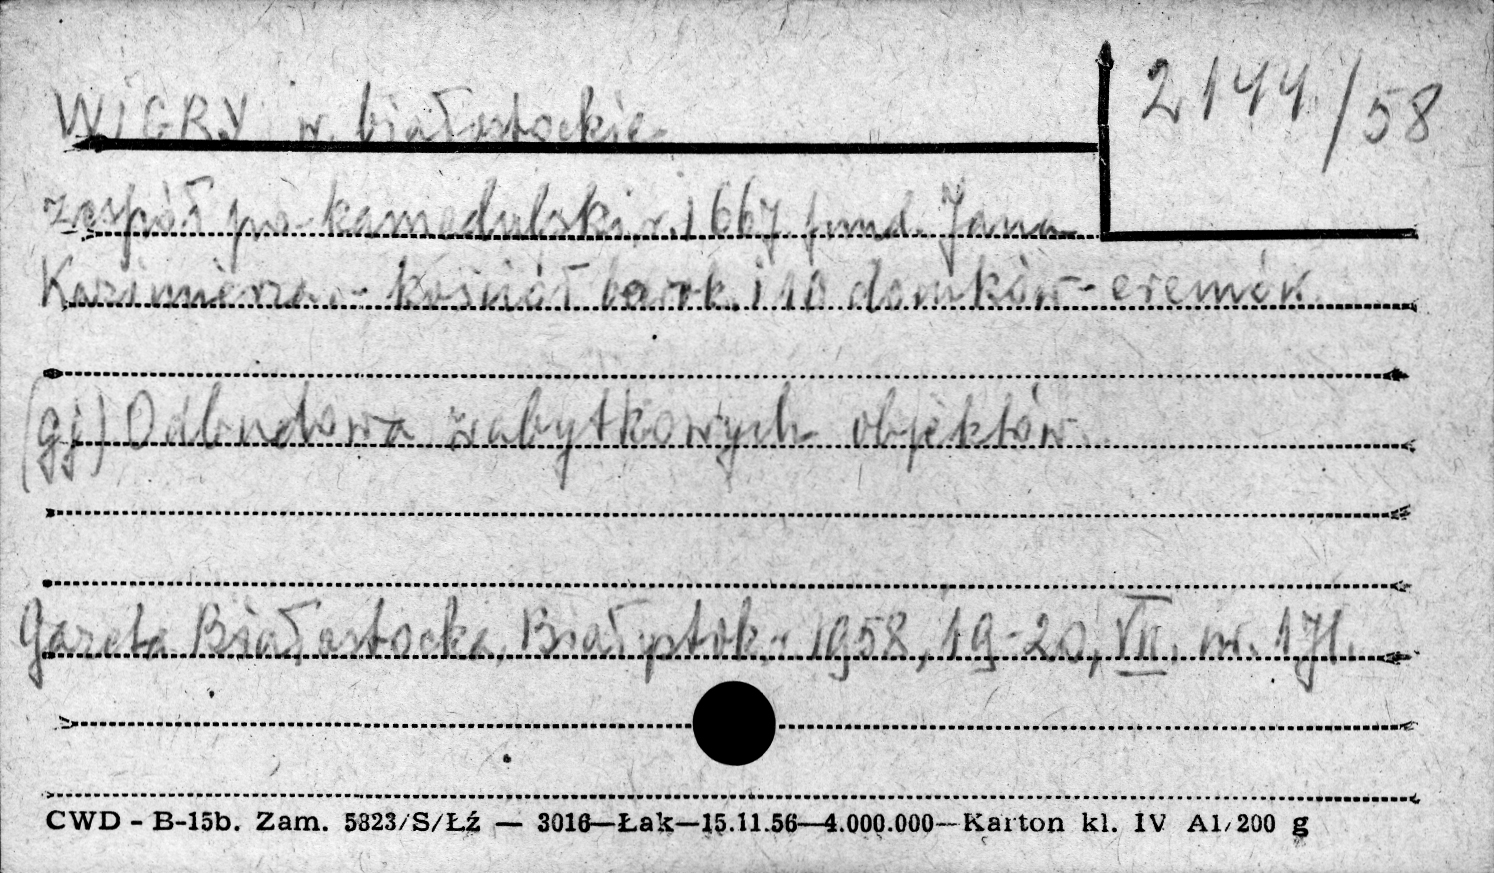 WIGRY w. białostockie
2144/58
zespół po-kamedulski, r. 1667 fund. Jana
Kazimierza - kościół barok. i 10 domków-eremów.
(gj) Odbudowa zabytkowych obiektów.
Gazeta Białostocka, Białystok, 1958, 19-20, VII, nr. 171.
CWD - B-15b. Zam. 5823/S/Łź — 3016—Łak—15.11.56—4.000.000—Karton kl. IV A1/200 g